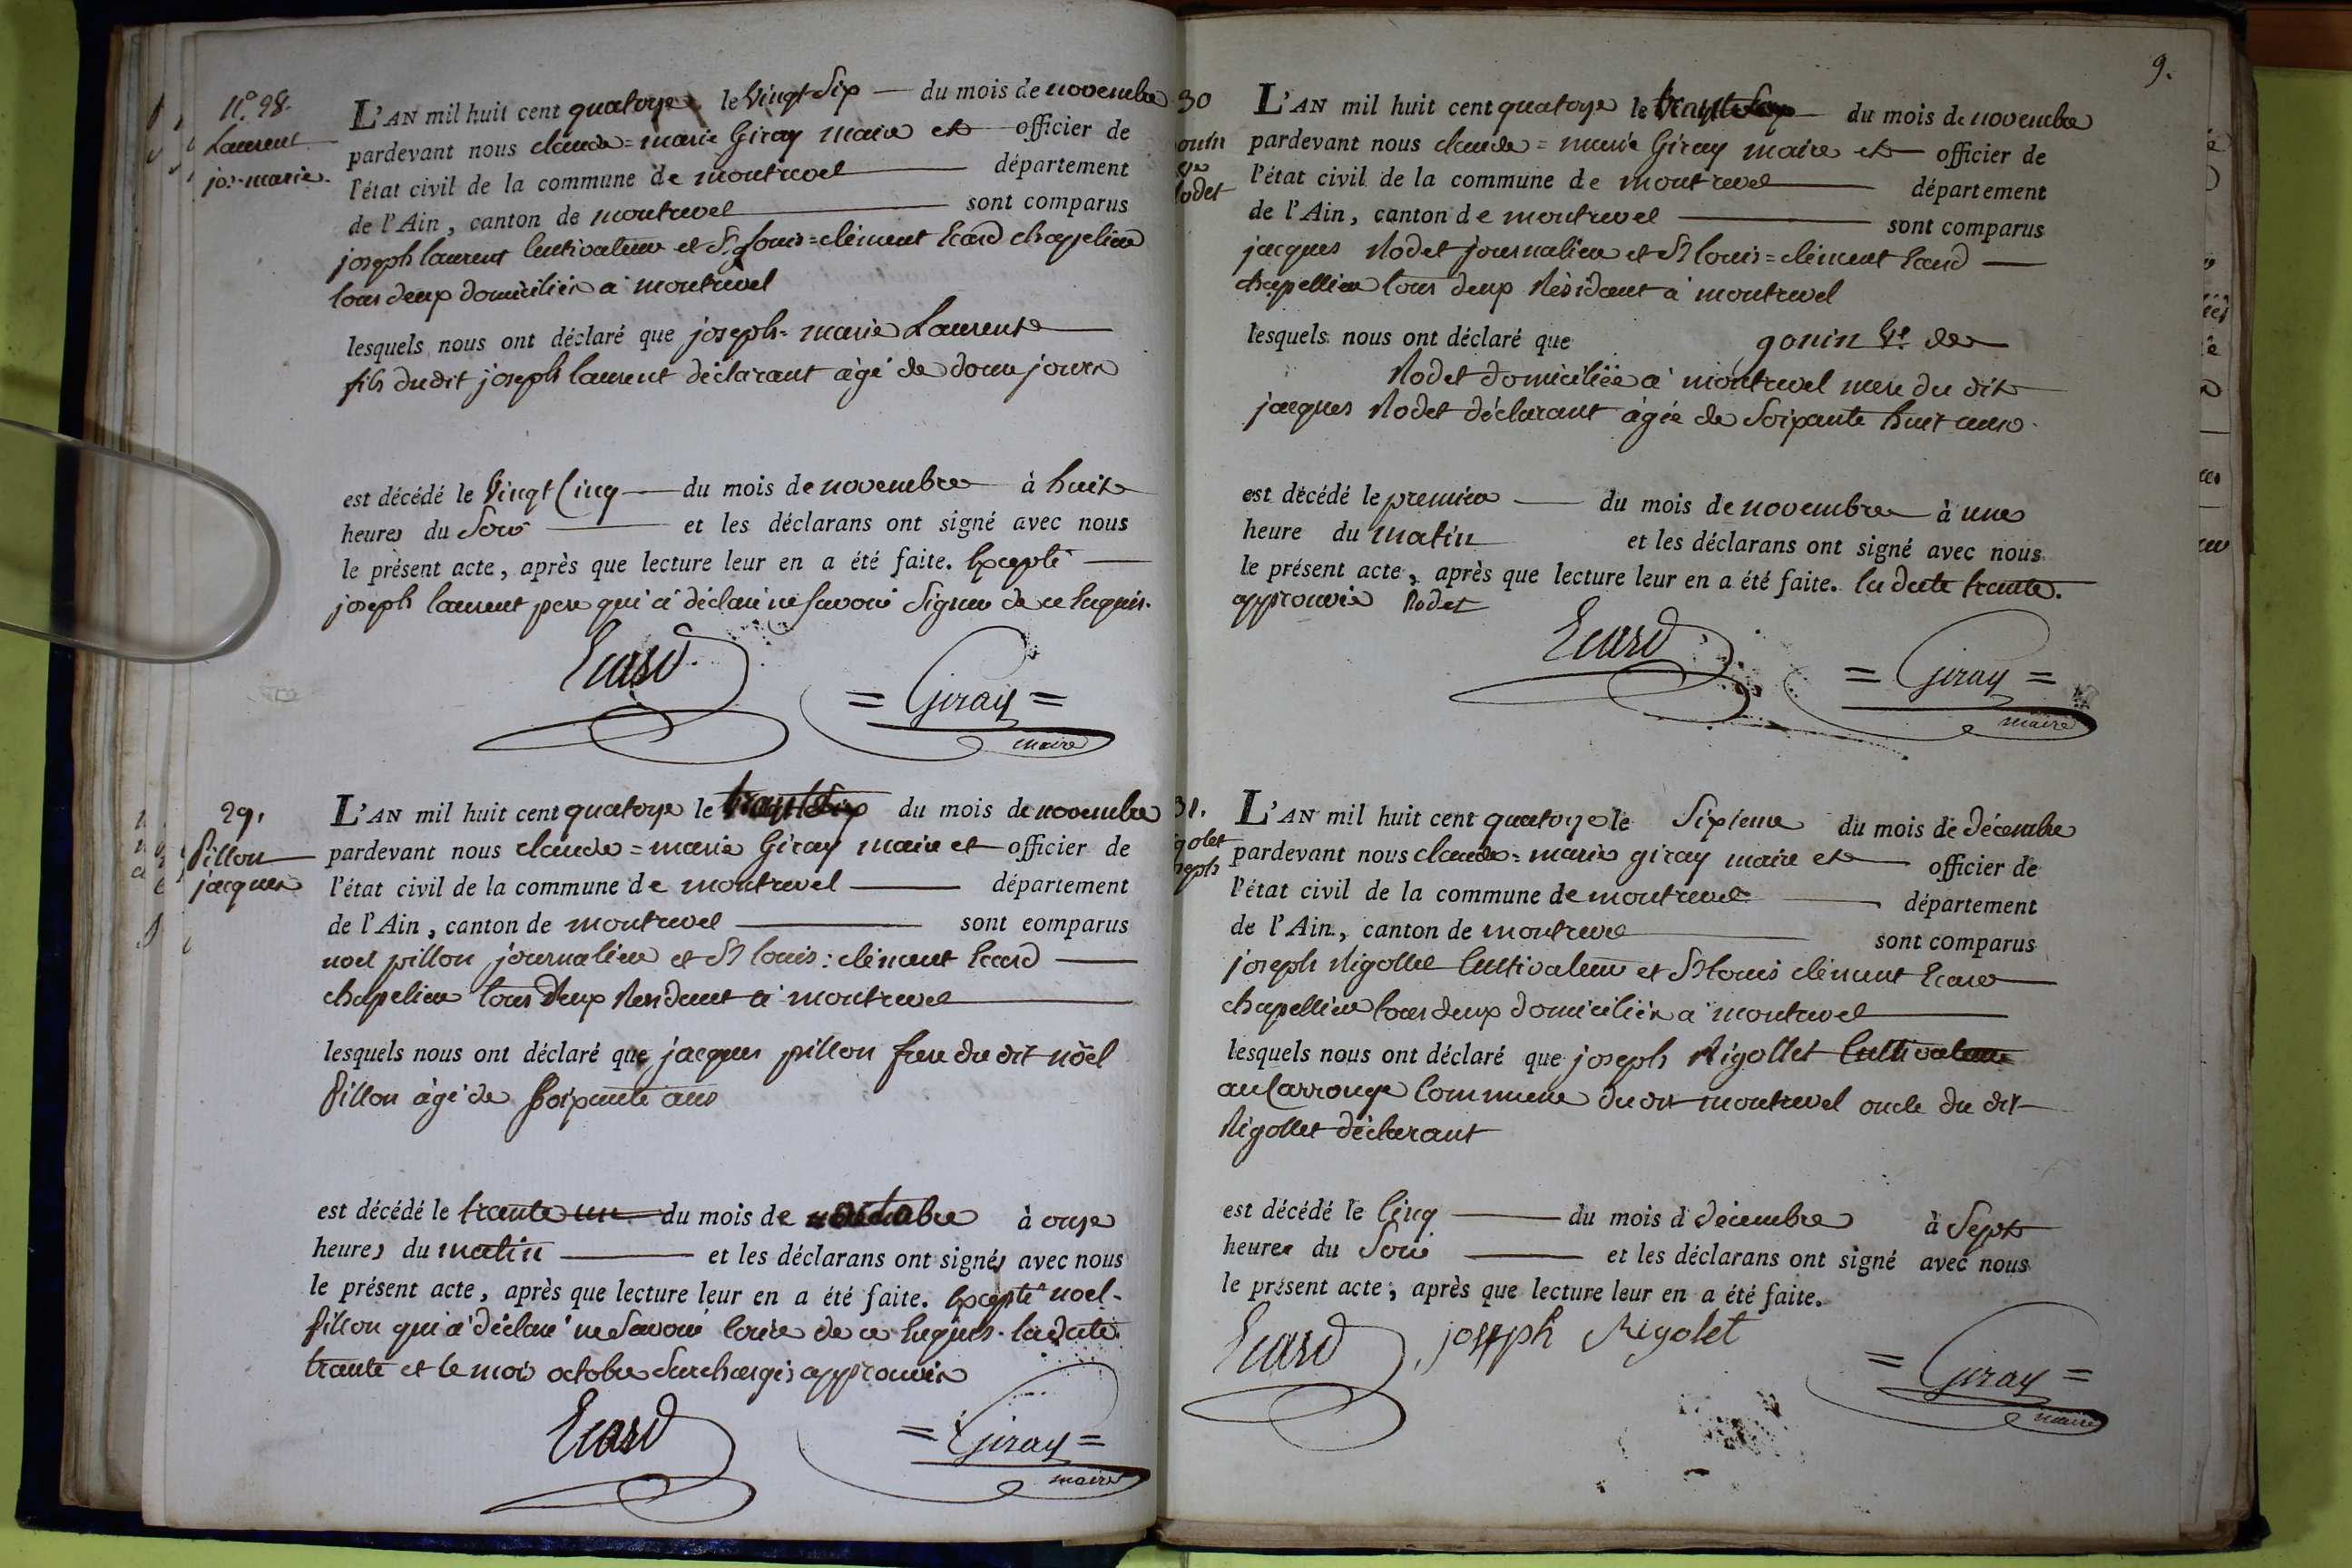 N.° 28.
Laurent
jos-marie.
L'AN mil huit cent quatorze le vingt Six du mois de novembre
pardevant nous claude = marie Giray maire et officier de
l'état civil de la commune de montrevel département
de l'Ain, canton de montrevel sont comparus
joseph laurent Cultivateur et Sr. louis = clément Ecard chapelier
tous deux domiciliés a montrevel
lesquels nous ont déclaré que joseph = marie Laurent
fils dudit joseph laurent déclarant âgé de douze jours
est décédé le vingt Cinq du mois de novembre à huit
heures du Soir et les déclarans ont signé avec nous
le présent acte, après que lecture leur en a été faite. Excepté
joseph laurent pere qui a déclaré ne Savoir Signer de ce Enquis.
Ecard
= Giray =
maire
29.
Pillon
jacques
L'AN mil huit cent quatorze le du mois de novembre
pardevant nous claude = marie Giray maire et officier de
l'état civil de la commune de montrevel département
de l'Ain, canton de montrevel sont comparus
noel pillon journalier et Sr louis = clément Ecard
chapelier tous deux Residant a montrevel
lesquels nous ont déclaré que jacques pillon frere du dit nöel
Pillon âgé de Soixante ans
est décédé le trente un du mois de octobre à onze
heures du matin et les déclarans ont signés avec nous
le présent acte, après que lecture leur en a été faite. Excepté noel
Pillon qui a déclaré ne Savoir de ce Enquis. la date
trante et le mois octobre Surchargés approuvés
Ecard
= Giray =
maire
9.
30
onin
ve
odet
L'AN mil huit cent quatorze le du mois de novembre
pardevant nous claude = marie Giray maire et officier de
l'état civil de la commune de montrevel département
de l'Ain, canton de montrevel sont comparus
jacques Rodet journalier et Sr louis = clément Ecard
chapellier tous deux Résidant a montrevel
lesquels nous ont déclaré que gonin Ve. de
Rodet domiciliée a montrevel mere du dit
jacques Rodet déclarant âgée de Soixante huit ans.
est décédé le premier du mois de novembre à une
heure du matin et les déclarans ont signé avec nous
le présent acte, après que lecture leur en a été faite. la date trante.
approuvée Rodet
Ecard
= Giray =
maire
31.
golet
seph
L'AN mil huit cent quatorze le Sixieme du mois de décembre
pardevant nous claude = marie giray maire et officier de
l'état civil de la commune de montrevel département
de l'Ain, canton de montrevel sont comparus
joseph Rigollet Cultivateur et Sr louis clément Ecard
chapellier tous deux domiciliés a montrevel
lesquels nous ont déclaré que joseph Rigollet Cultivateur
au Carrouge Commune du dit montrevel oncle du dit
Rigollet déclarant
est décédé le Cinq du mois d décembre à Sept
heures du Soir et les déclarans ont signé avec nous
le présent acte, après que lecture leur en a été faite.
Ecard
joseph Rigolet
= Giray =
maire